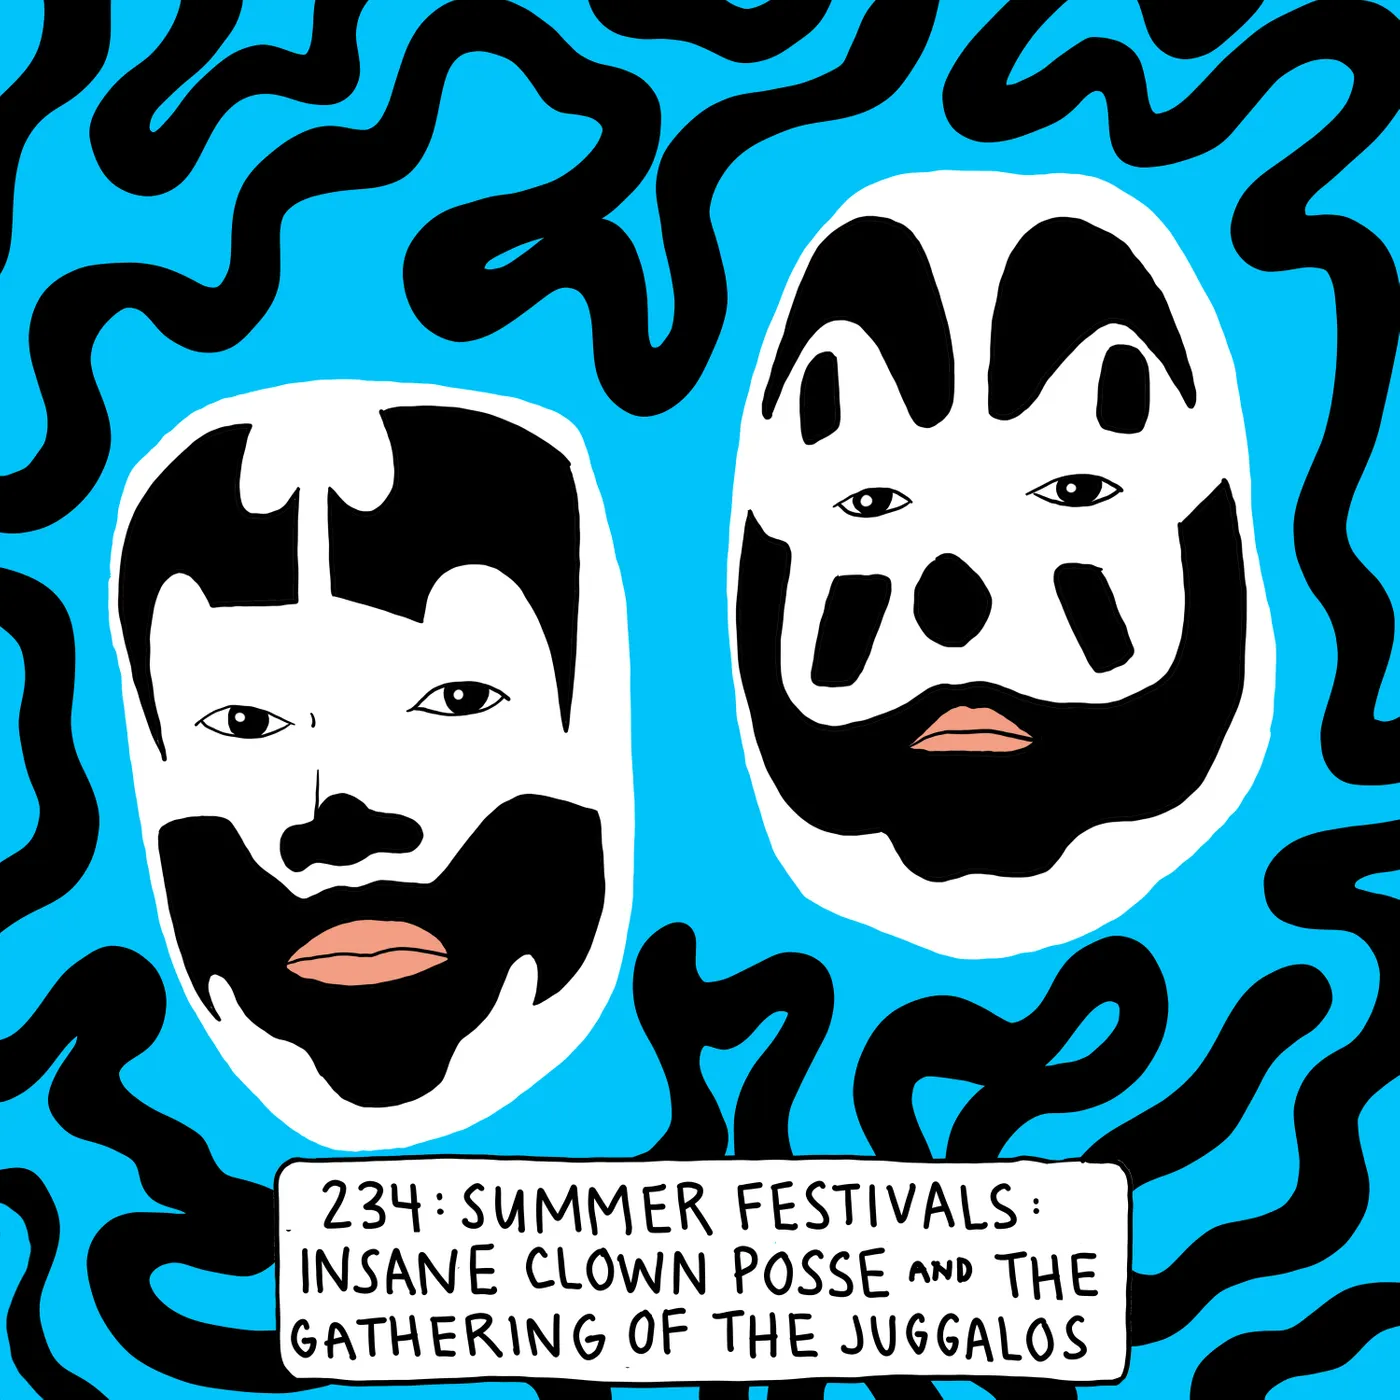 234: SUMMER FESTIVALS:
INSANE CLOWN POSSE AND THE
GATHERING OF THE JUGGALOS